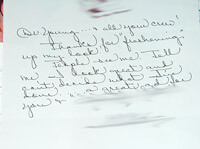 Dr. Young... & all your crew!
Thanks for "freshening"
up my look.
People see me tell
me I look great and
can't decide what I've
done... a great job for
you &